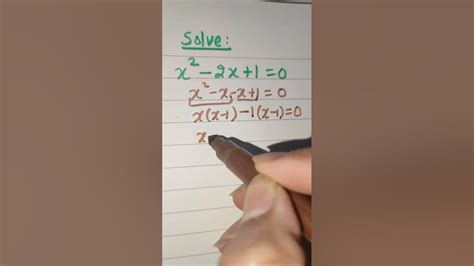 Solve:
x² - 2x + 1 = 0
x² - x - x + 1 = 0
x(x-1) - 1(x-1) = 0
x